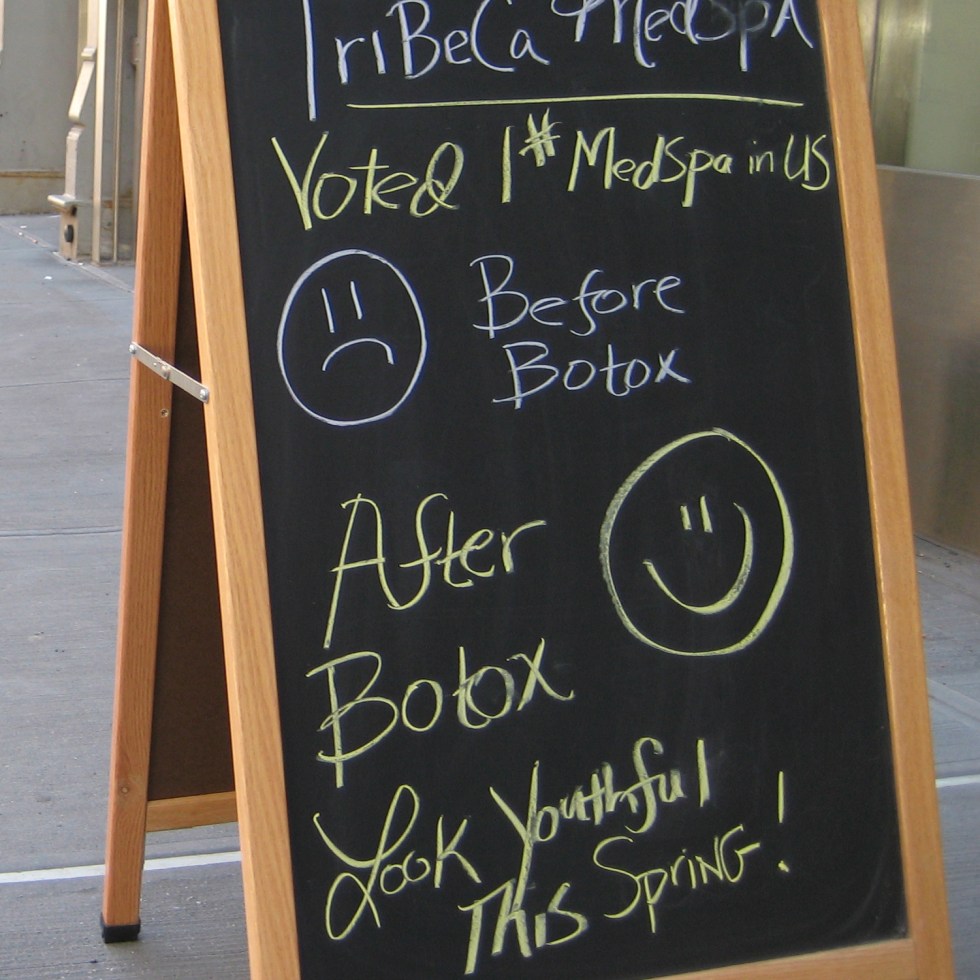 TriBeCa MedSpa
Voted 1# MedSpa in US
Before
Botox
After
Botox
Look Youthful
This Spring!